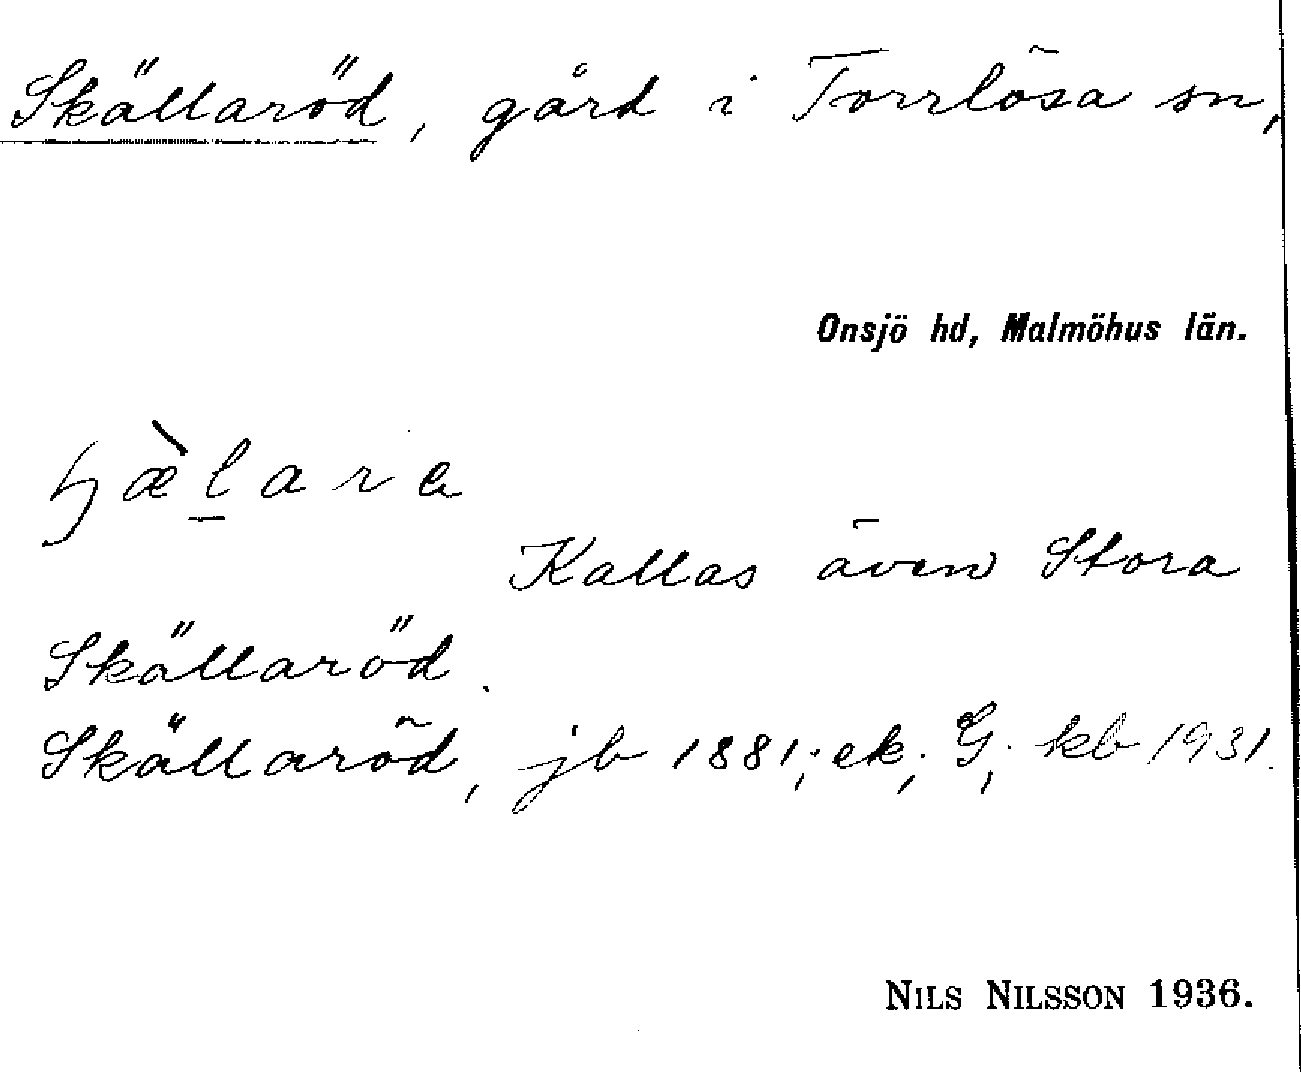 Skällaröd, gård i Torrlösa sn,
Onsjö hd, Malmöhus län.
Kallas även Stora
Skällaröd.
Skällaröd, jb 1881; ek; G; kb 1931.
NILS NILSSON 1936.